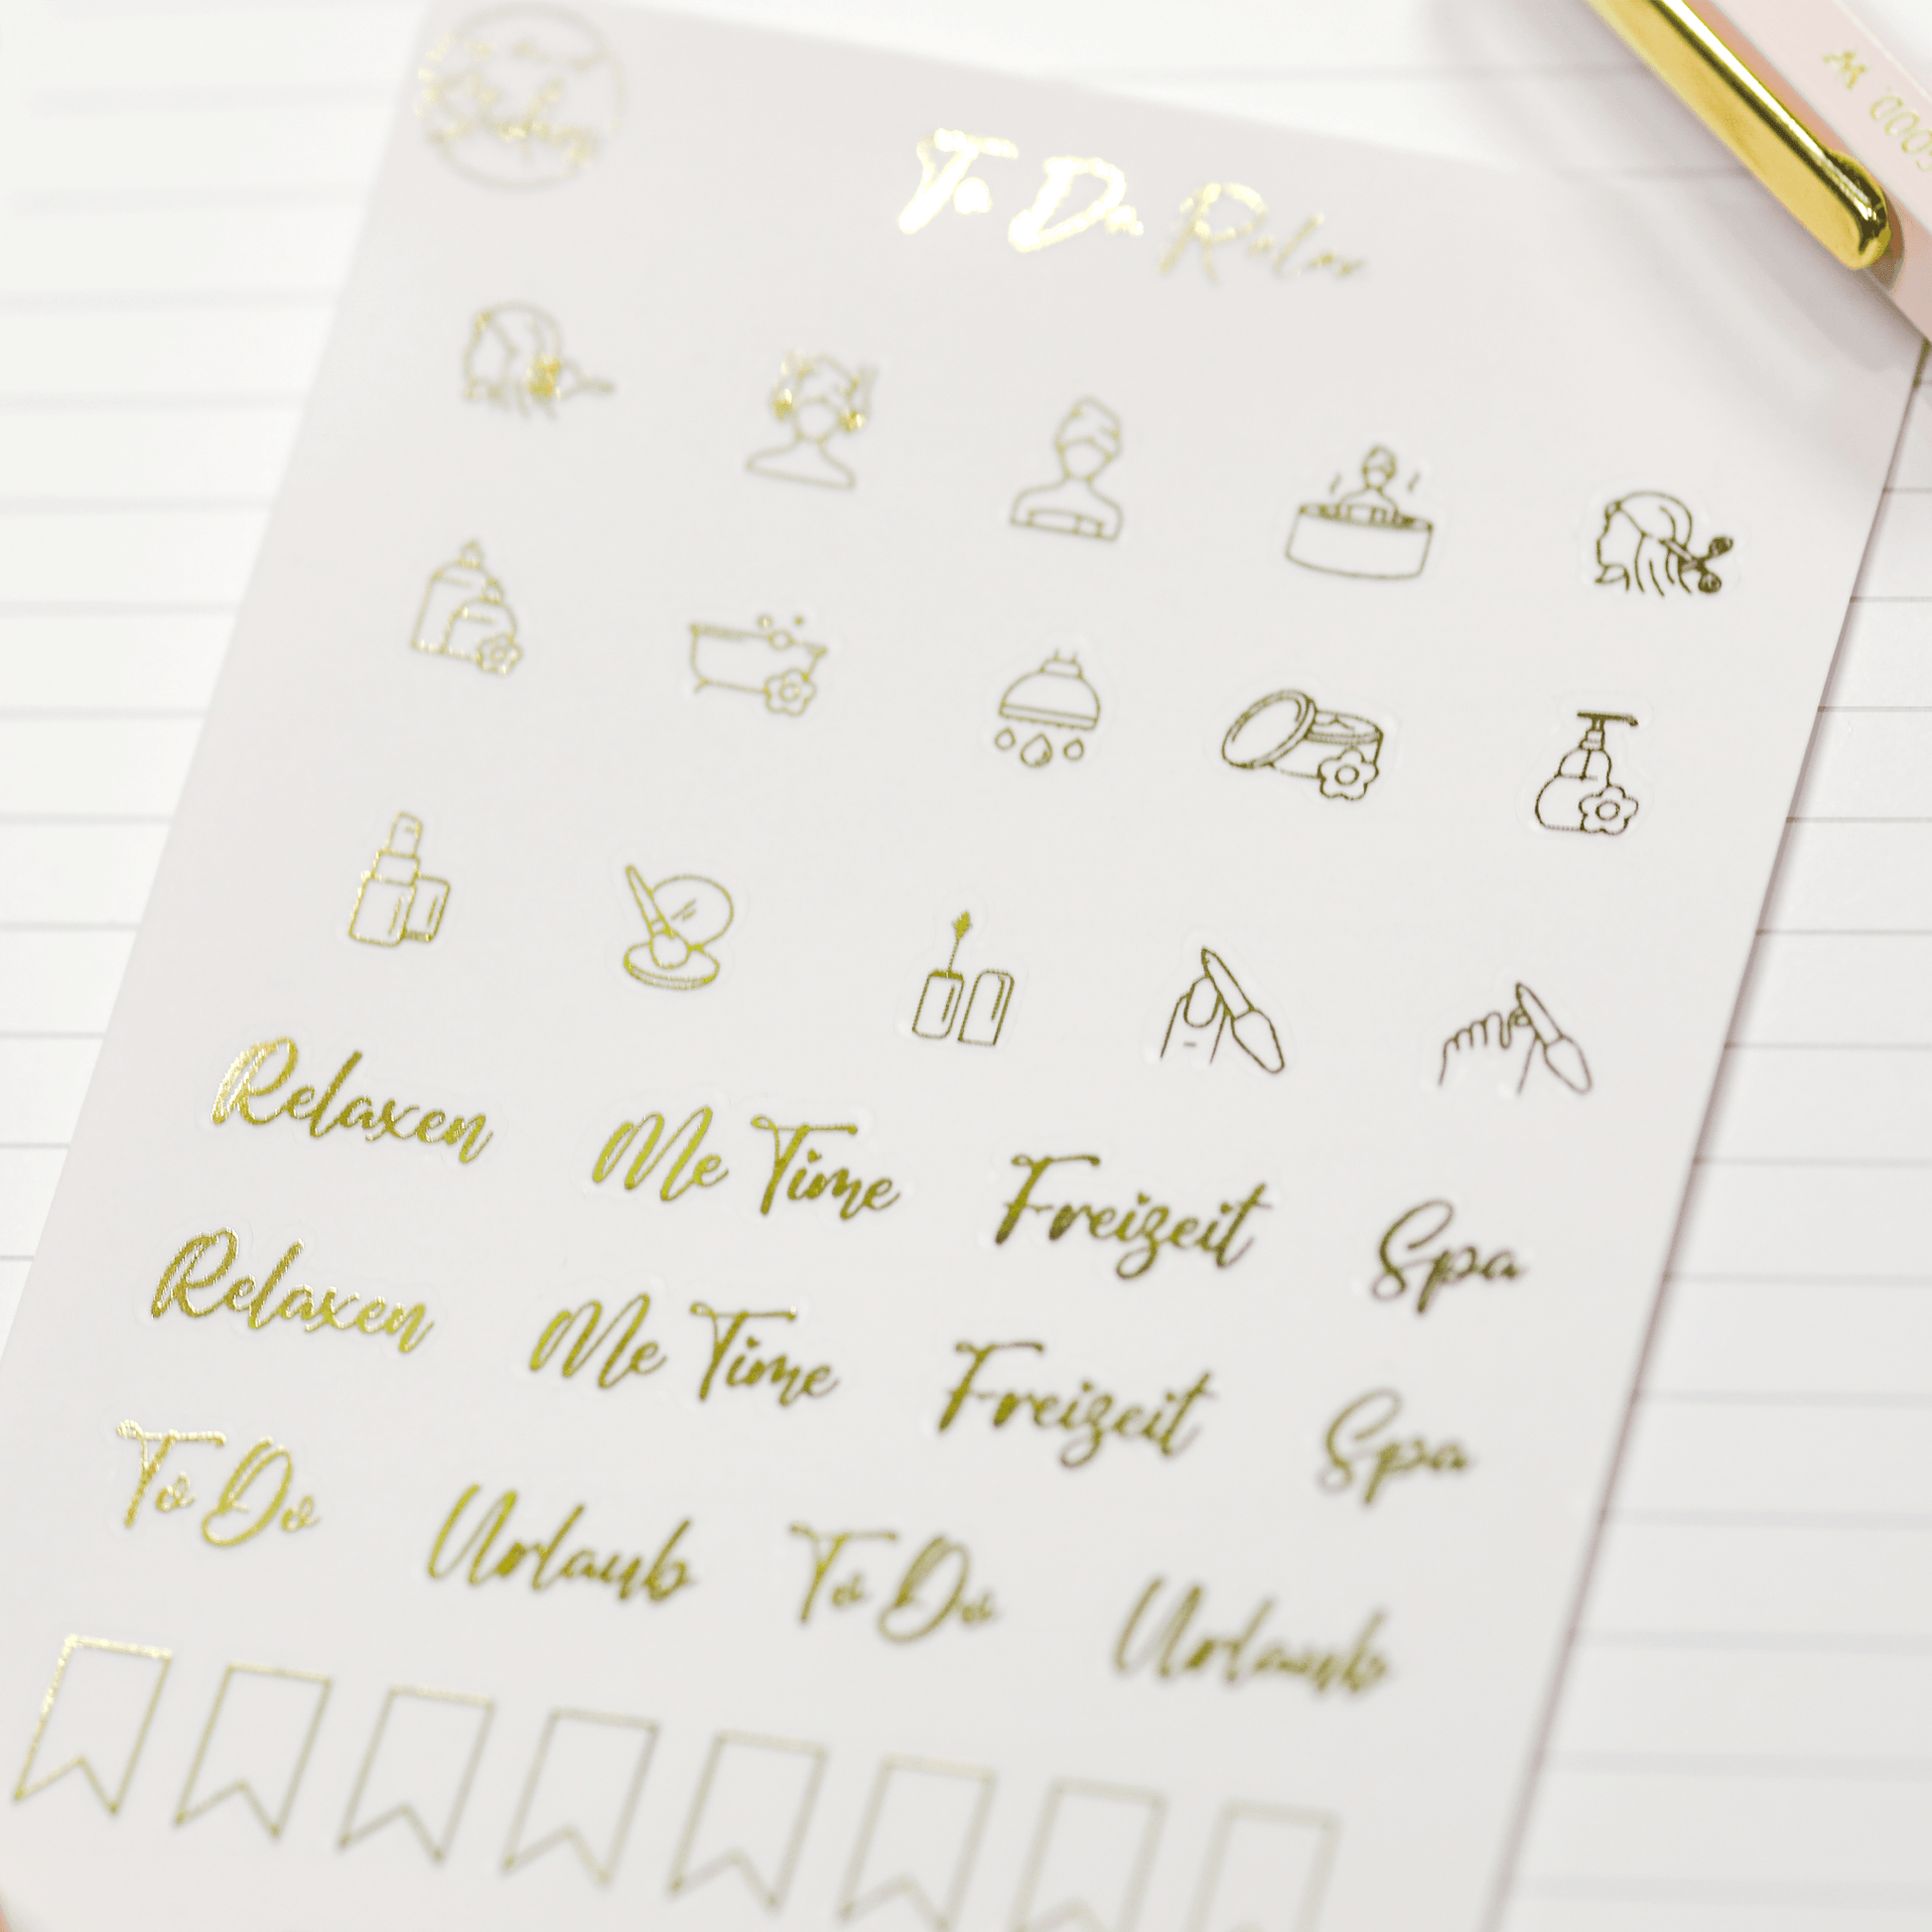 To Do Relax
Relaxen Me Time Freizeit Spa
Relaxen Me Time Freizeit Spa
To Do Urlaub To Do Urlaub